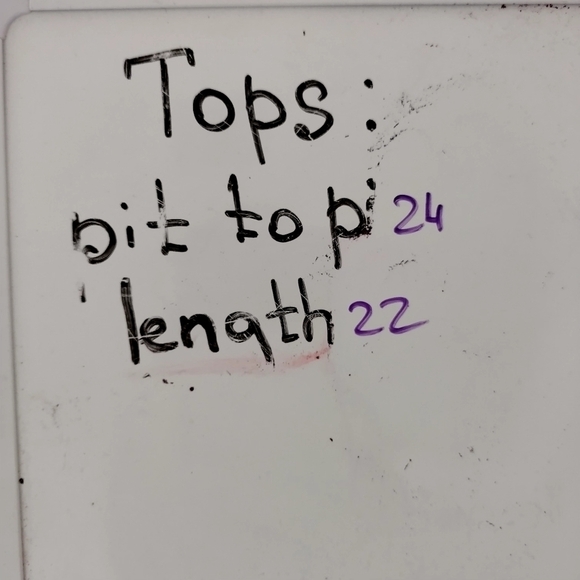 Tops:
pit to pi 24
length 22